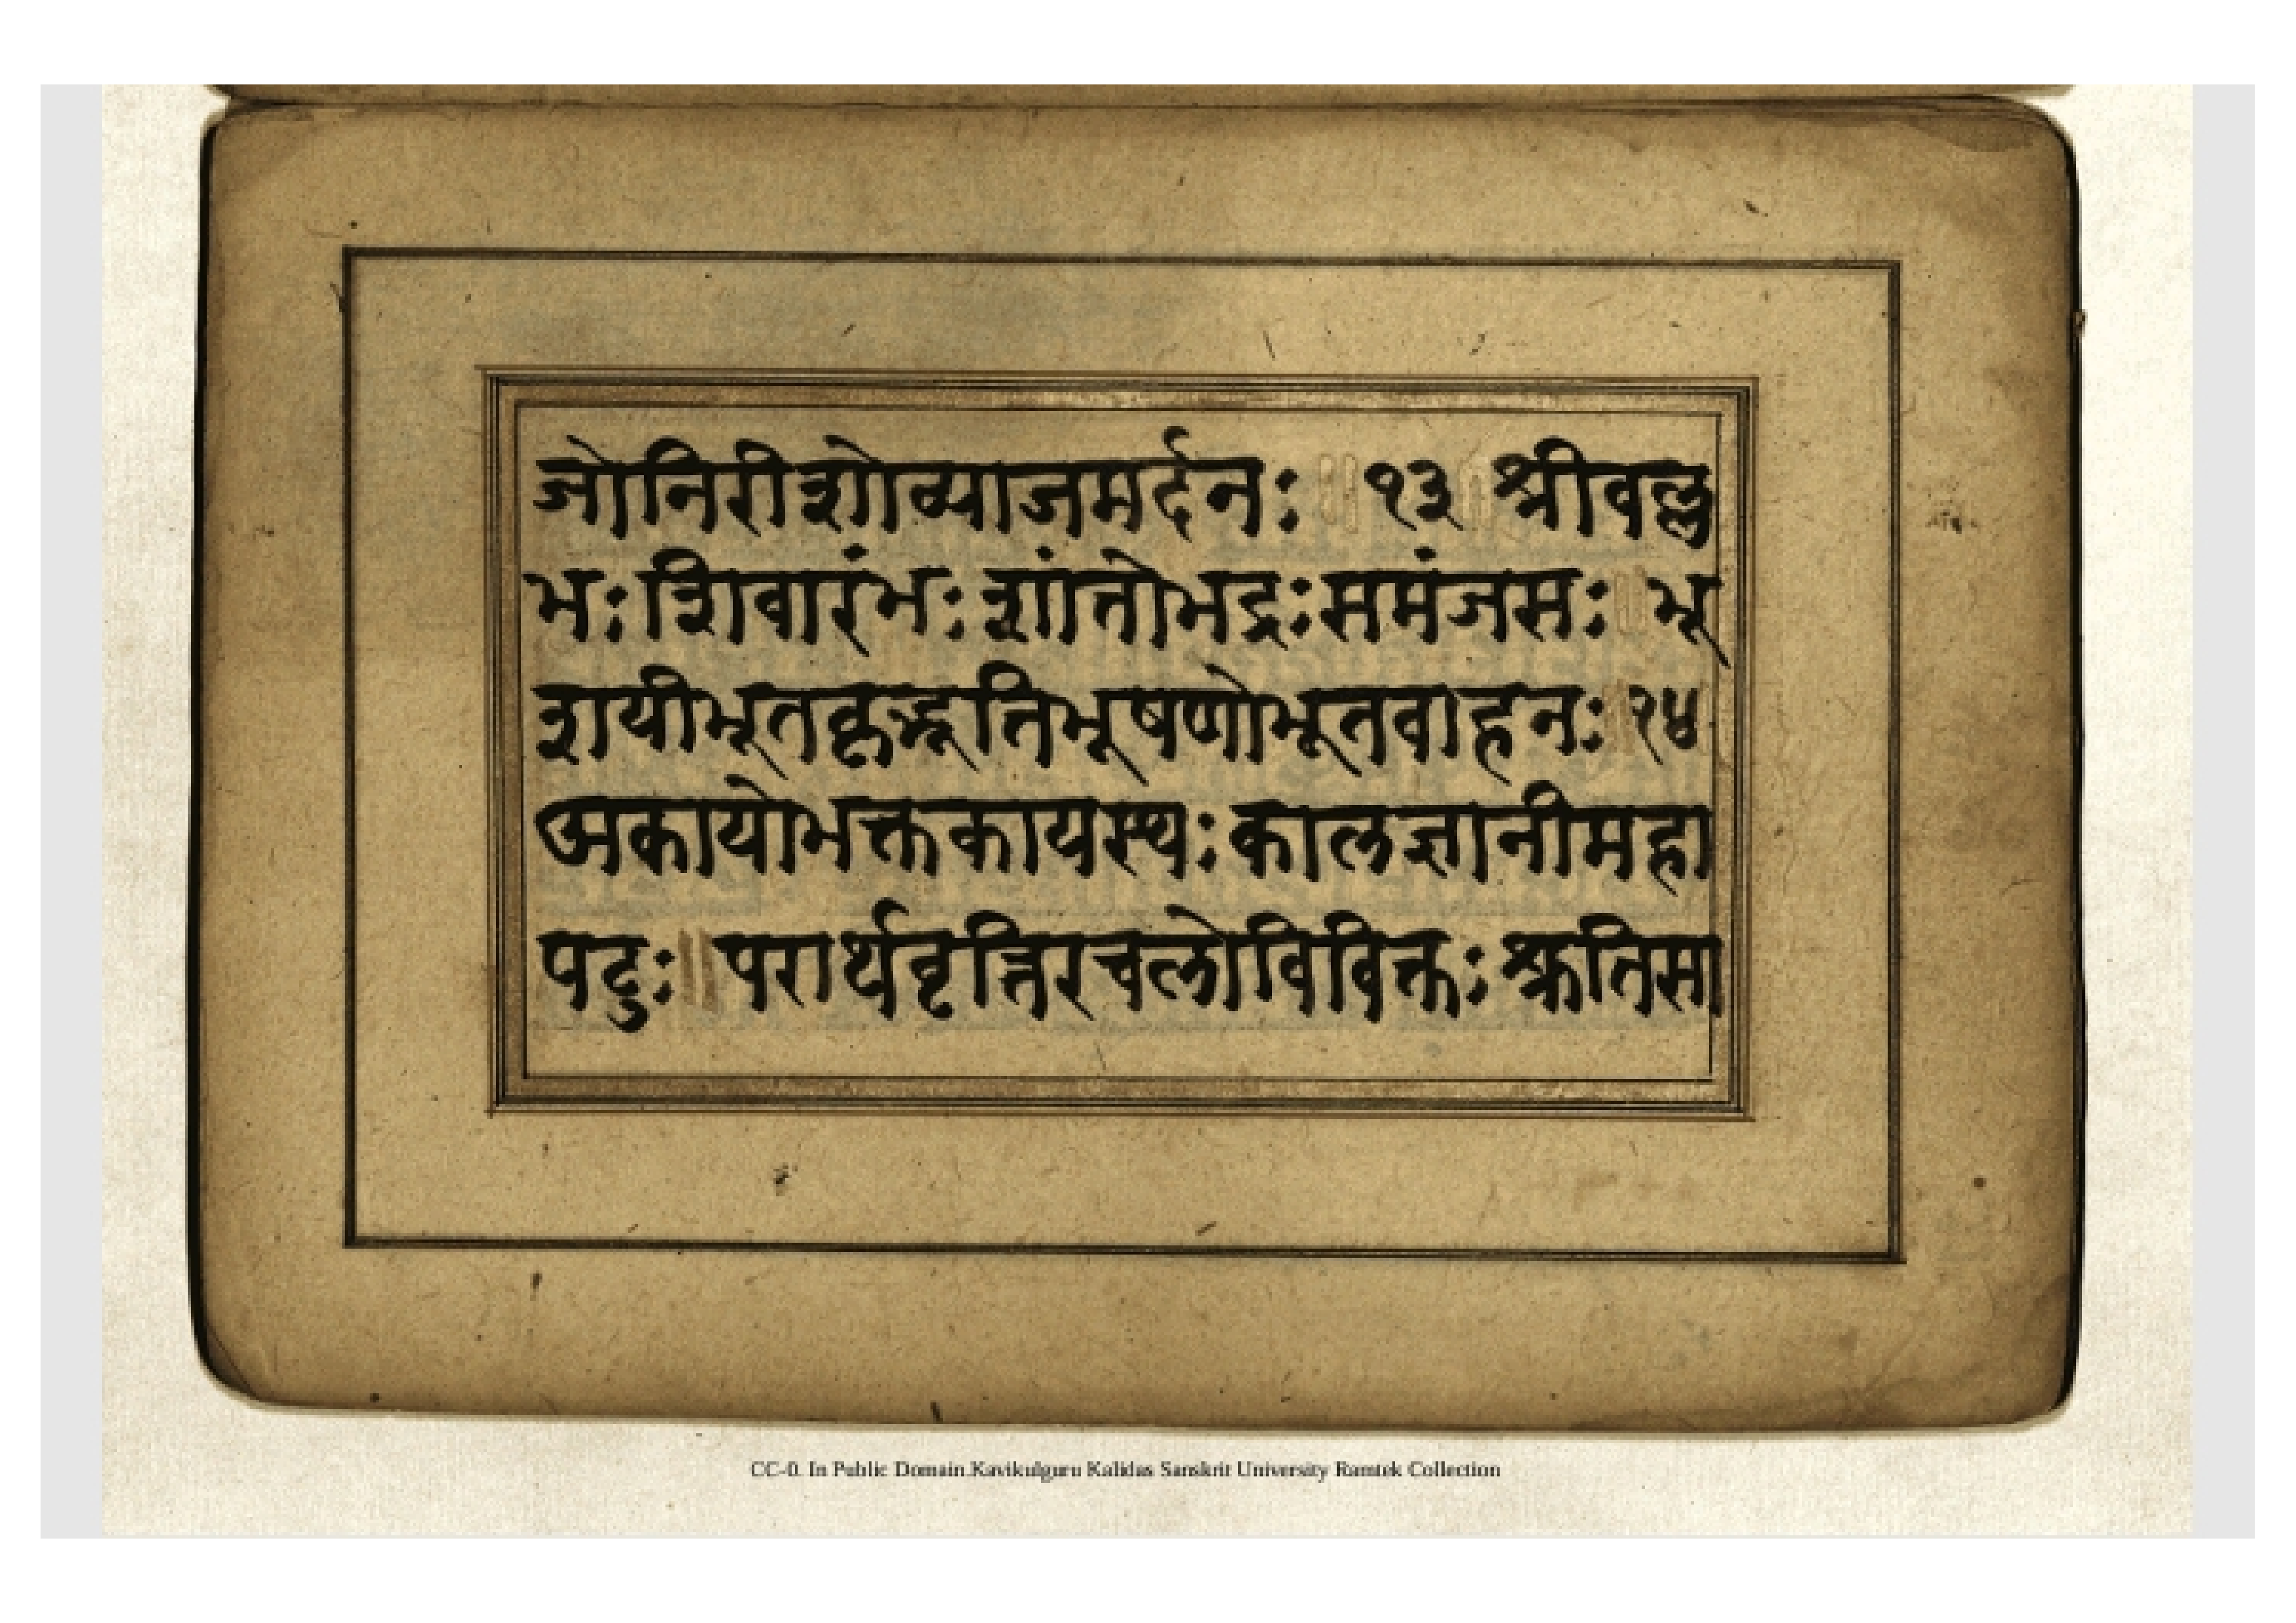 जोनिरीशोव्याजमर्दनः ॥ १३ ॥ श्रीवल्ल
भः शिवारंभः शांतोभद्रः समंजसः ॥ भू
शयीभूतकृद्भूतिभूषणोभूतवाहनः ॥ १४
अकायोभक्तकायस्थः कालज्ञानीमहा
पटुः ॥ परार्थवृत्तिरचलोविविक्तः श्रुतिसा
CC-0. In Public Domain.Kavikulguru Kalidas Sanskrit University Ramtek Collection